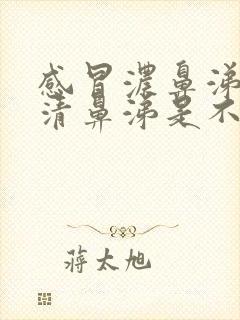 感冒濃鼻涕
清鼻涕是不
蒋太旭